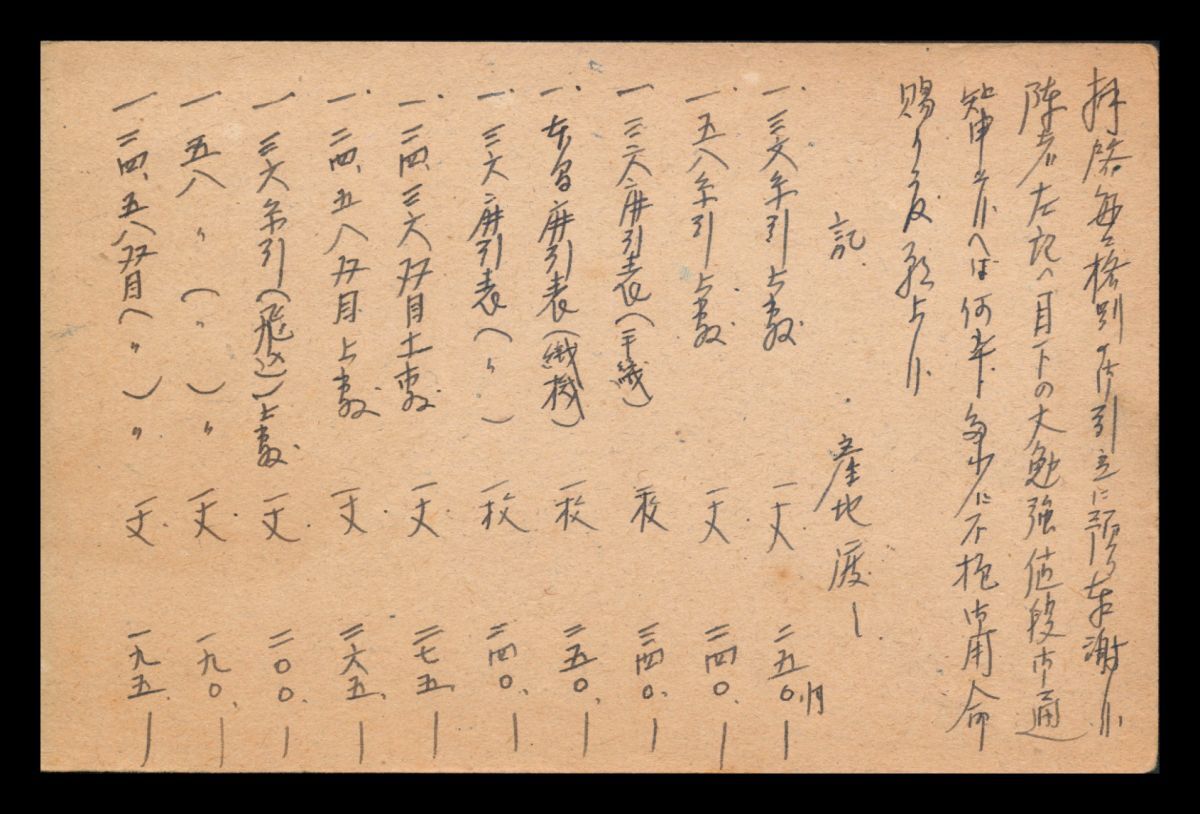 拝啓毎々格別御引立に預り奉謝候
陳者左記へ目下の大勉強値段御通
知申上候へば何卒多少に不拘御用命
賜り度願上候
記 産地渡し
一、三六糸引上敷 一丈 二五〇円―
一、五八糸引上敷 一丈 二四〇、―
一、三六麻引表(手織) 一枚 二四〇、―
一、麻引表(織機) 一枚 二五〇、―
一、三六麻引表(〃) 一枚 二四〇、―
一、二四、三六双目上敷 一丈 二七五、―
一、二四、五八双目上敷 一丈 二六五、―
一、三六糸引(飛込)上敷 一丈 二〇〇、―
一、五八〃(〃)〃 一丈 一九〇、―
一、二四、五八双目(〃)〃 一丈 一九五、―